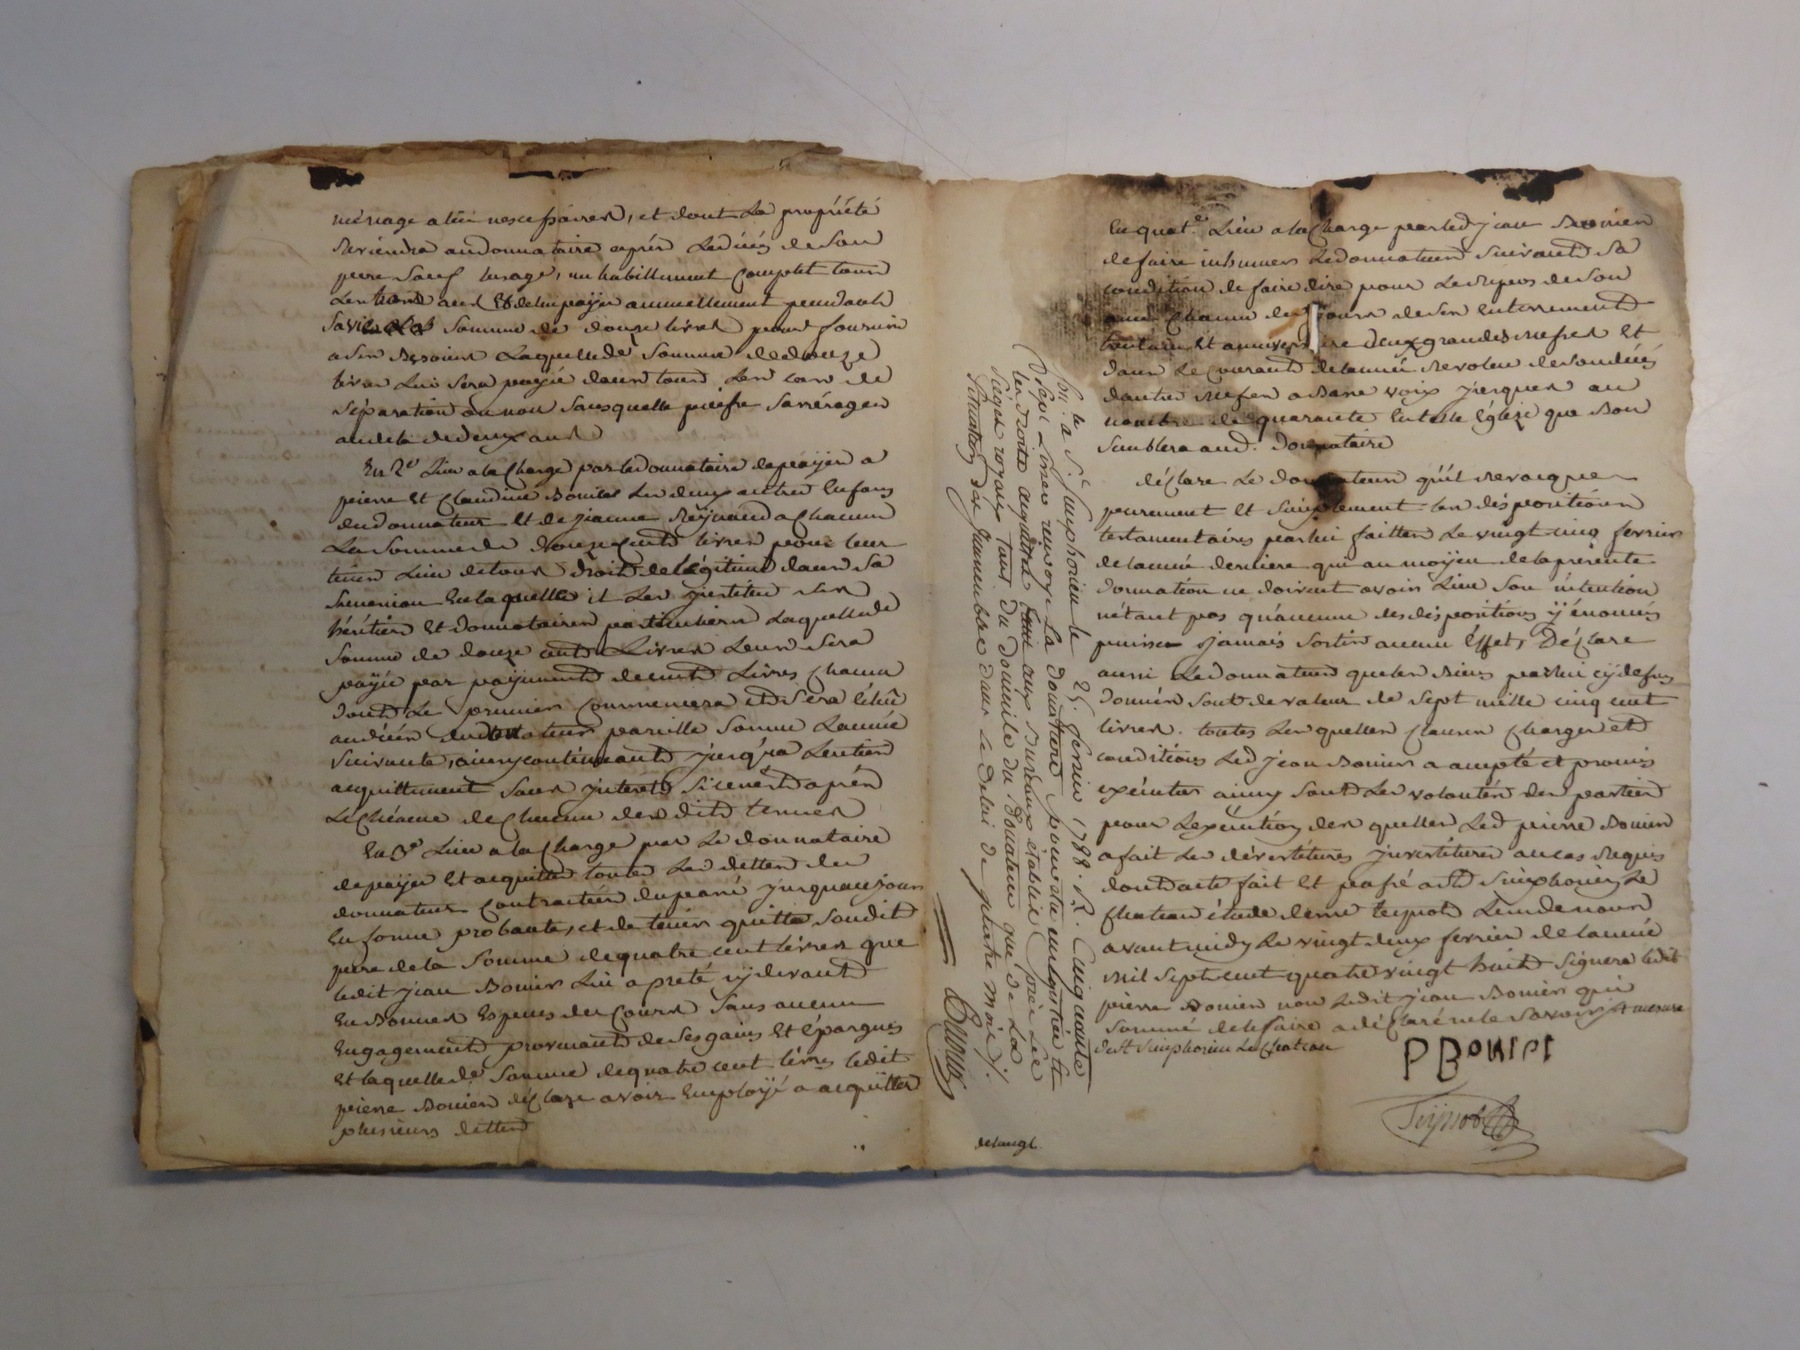 ménage a lui nescessaires, et dont la propriété
reviendra audonnataire après ledécés de son
pere sauf lusagé, un habillement complet tous
les ans et de luy payer annuellement pendant
sa vie la somme de douze livres pour fournir
a ses besoins laquelle de somme de douze
livres lui sera payée dans tous les cas de
séparation ou non sans quelle puisse sarrérager
audela de deux ans
En 2e lieu a la Charge par ledonnataire de payer a
pierre et Claudine Bonier les deux autres enfans
dudonnateur et de jeanne Reynaud a Chacun
la somme de douze cents livres pour leur
tenir lieu de tous droits de légitime dans sa
succession en laquelle il les institue ses
héritiers et donnataires particuliers laquelle de
somme de douze cents livres leur sera
payée par payements de cents livres chacun
dont le premier commencera et sera éxhû
audécés dudonnateur pareille somme lannée
suivante, ainsy continuant jusqu'a lentier
acquittement sans jnterets si cenest après
léchéance de chacun des dits termes
En 3e lieu a la Charge par le donnataire
de payer et acquitter toutes les dettes du
donnateur contractées du passé jusquacejour
en forme probante, et de tenir quitte sondit
pere de la somme de quatre cent livres que
ledit jean Bonier lui a preté cy devant
en bonnes espéces de cours sans aucun
engagement provenant de ses gains et épargnes
et laquelle de somme de quatre cent livres ledit
pierre Bonier déclare avoir employé a acquitter
plusieurs dettes
Con.lé a St Simphorien le 25 fevrier 1788. R. Cinquante
sept livres renvoyé la
les droits acquittés aux Bureaux établis près les
sièges royaux tant du domicile du Donateur que de la
situation des Jmmeubles dans le delai de quatre mois.
delaugl
En quat.e lieu a la Charge parled jean Bonier
de faire inhumer ledonnateur suivant sa
condition de faire dire pour le repos de son
ame chacun des jours de son enterrement
trentain et anniversaire deux grandes messes et
dans le courant de lannée revolue de sondécés
dautres messes a Basse voix jusques au
nombre de quarante en telle Eglize que bon
semblera aud. donnataire
déclare le donnateur qu'il revoque
purement et simplement les dispositions
testamentaires parlui faittes le vingt cinq fevrier
de lannée derniere qui au moyen de la présente
donnation ne doivent avoir lieu son intention
n'étant pas qu'aucune des dispositions y énoncés
puisse jamais sortir aucun effet, Déclare
aussi le donnateur que les biens par lui cy dessus
donnés sont de valeur de sept mille cinq cent
livres. toutes les quelles clauses charges et
conditions led jean Bonier a accepté et promis
exécuter ainsy sont les volontés des parties
pour lexécution des quelles led pierre Bonier
a fait les dévestitures jnvestitures au cas requis
dont acte fait et passé a St Simphorien le
chateau étude deme teyssot lundenous
avant midy le vingt deux fevrier de lannée
mil sept cent quatre vingt huit signera ledit
pierre Bonier non ledit jean Bonier qui
sommé dele faire a déclaré ne le savoir, et mesure
de St Simphorien le Chateau
P Bonier
Teyssot